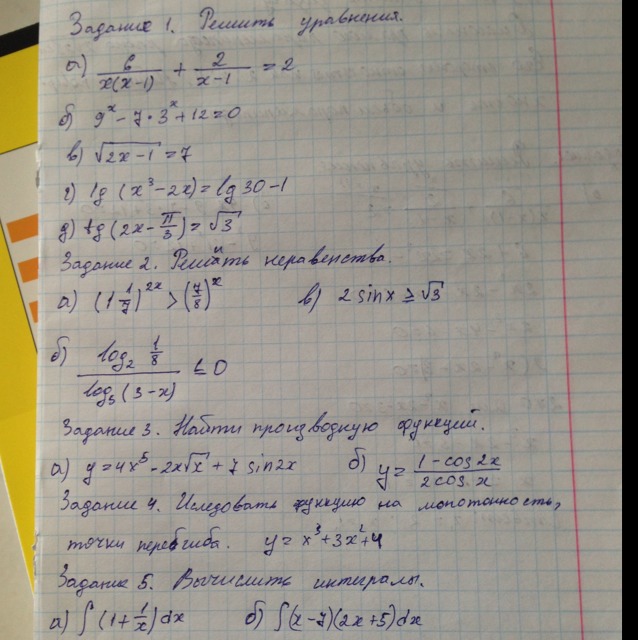 Задание 1. Решить уравнения.
а) 6/(x(x-1)) + 2/(x-1) = 2
б) 9^x - 7·3^x + 12 = 0
в) √(2x-1) = 7
г) lg (x³-2x) = lg 30 - 1
д) tg (2x - π/3) = √3
Задание 2. Решить неравенства.
а) (1 1/7)^(2x) > (7/8)^x в) 2 sin x ≥ √3
б) log₂ 1/8 / log₃ (3-x) ≤ 0
Задание 3. Найти производную функций.
а) y = 4x⁵ - 2x√x + 7 sin 2x б) y = (1 - cos 2x)/(2 cos x)
Задание 4. Иследовать функцию на монотонность,
точки перегиба. y = x³ + 3x² + 4
Задание 5. Вычислить интегралы.
а) ∫ (1 + 1/x) dx б) ∫ (x-7)(2x+5) dx